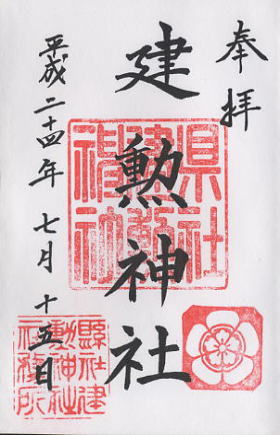 奉拝
建勲神社
平成二十四年七月十五日
県社建勲神社
縣社建勲神社社務所